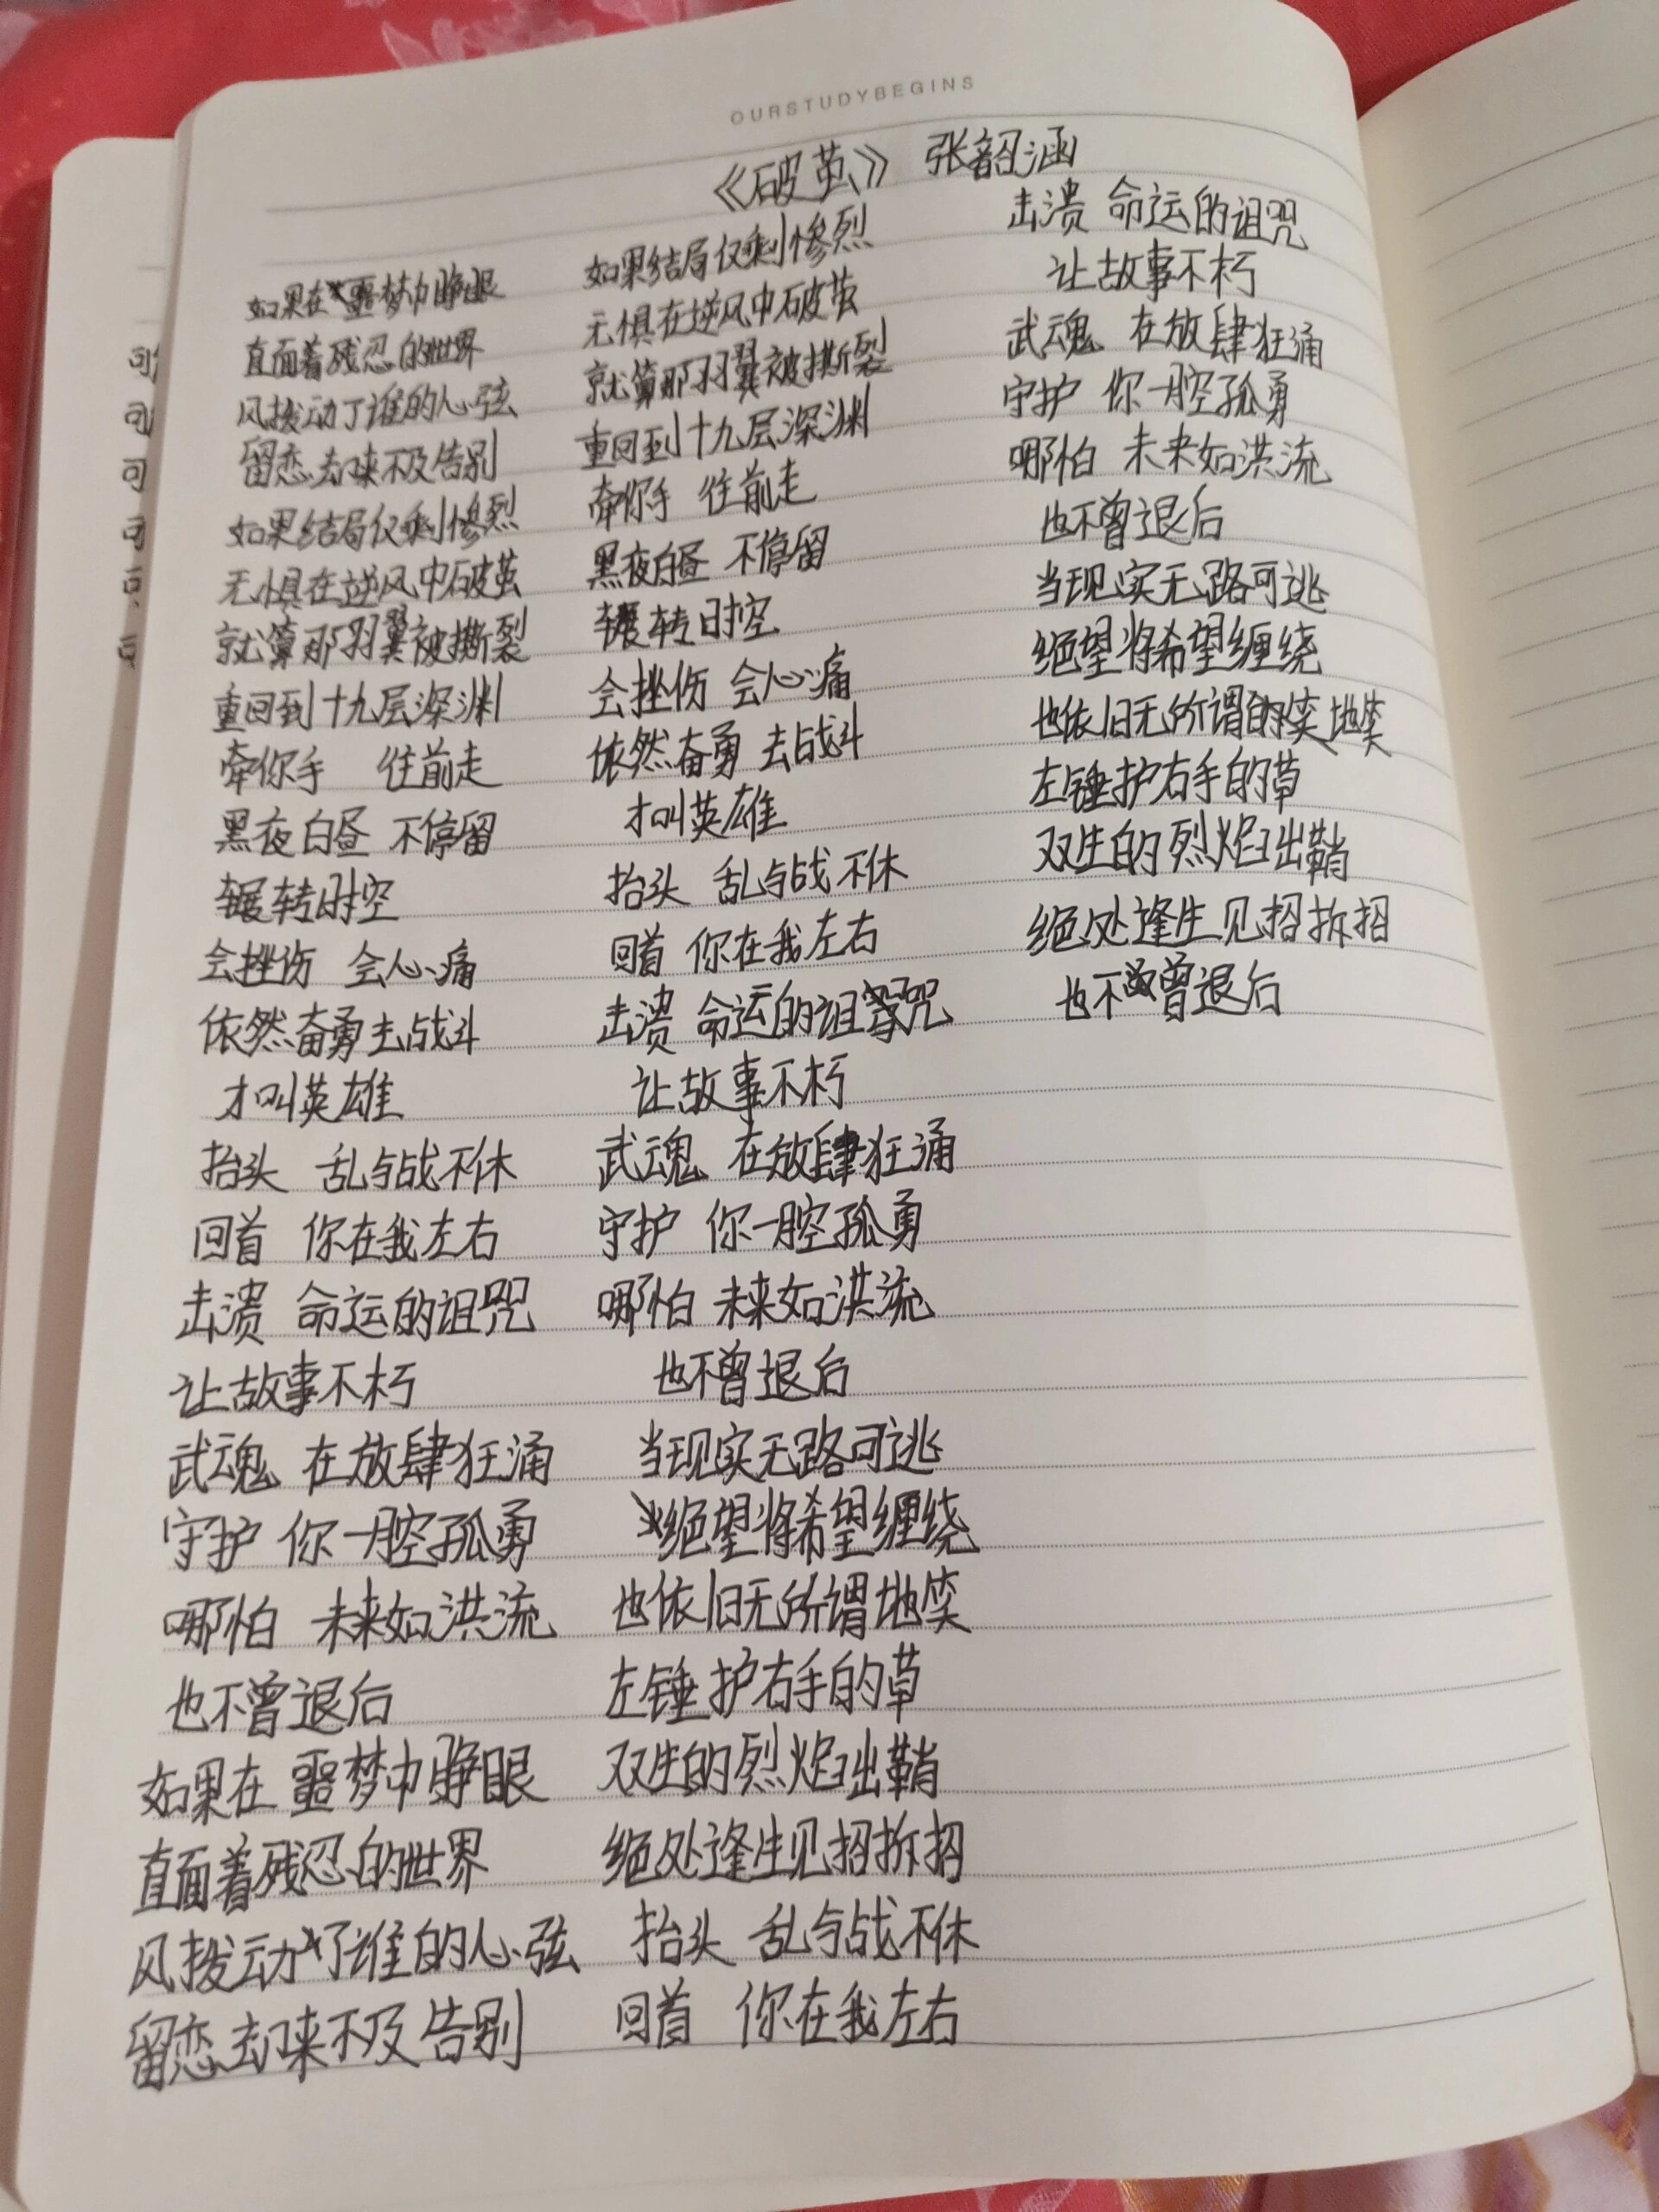 OURSTUDYBEGINS
《破茧》 张韶涵
如果在噩梦中睁眼
直面着残忍的世界
风拨动了谁的心弦
留恋却来不及告别
如果结局仅剩惨烈
无惧在逆风中破茧
就算那羽翼被撕裂
重回到十九层深渊
牵你手 往前走
黑夜白昼 不停留
辗转时空
会挫伤 会心痛
依然奋勇去战斗
才叫英雄
抬头 乱与战不休
回首 你在我左右
击溃 命运的诅咒
让故事不朽
武魂 在放肆狂涌
守护 你一腔孤勇
哪怕 未来如洪流
也不曾退后
如果在噩梦中睁眼
直面着残忍的世界
风拨动了谁的心弦
留恋却来不及告别
如果结局仅剩惨烈
无惧在逆风中破茧
就算那羽翼被撕裂
重回到十九层深渊
牵你手 往前走
黑夜白昼 不停留
辗转时空
会挫伤 会心痛
依然奋勇 去战斗
才叫英雄
抬头 乱与战不休
回首 你在我左右
击溃 命运的诅咒
让故事不朽
武魂 在放肆狂涌
守护 你一腔孤勇
哪怕 未来如洪流
也不曾退后
当现实无路可逃
绝望将希望缠绕
也依旧无所谓地笑
左锤护右手的草
双生的烈焰出鞘
绝处逢生见招拆招
抬头 乱与战不休
回首 你在我左右
击溃 命运的诅咒
让故事不朽
武魂 在放肆狂涌
守护 你一腔孤勇
哪怕 未来如洪流
也不曾退后
当现实无路可逃
绝望将希望缠绕
也依旧无所谓地笑
左锤护右手的草
双生的烈焰出鞘
绝处逢生见招拆招
也不曾退后